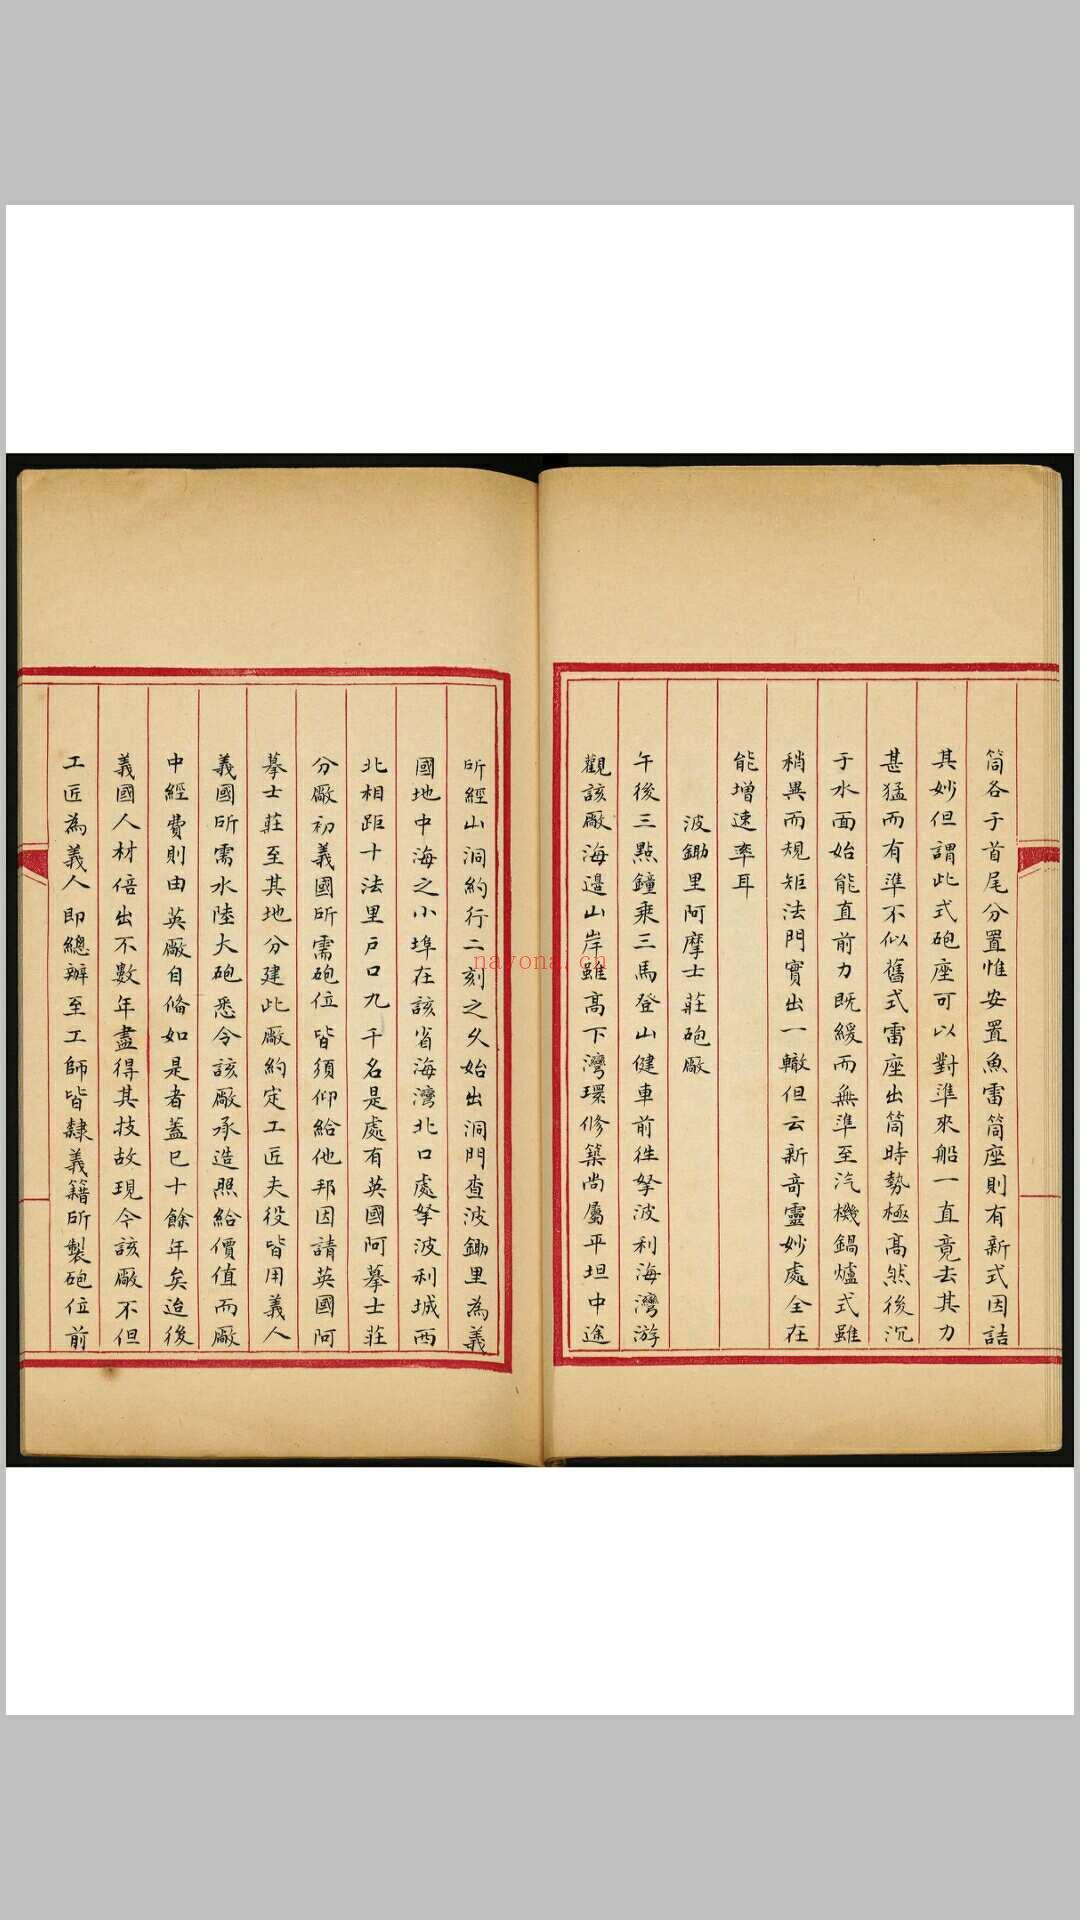 筒各于首尾分置惟安置魚雷筒座則有新式因詰
其妙但謂此式砲座可以對準來船一直竟去其力
甚猛而有準不似舊式雷座出筒時勢極高然後沉
于水面始能直前力既緩而無準至汽機鍋爐式雖
稍異而規矩法門實出一轍但云新奇靈妙處全在
能增速率耳
波鋤里阿摩士莊砲廠
午後三點鐘乘三馬登山健車前往孥波利海灣游
觀該廠海邊山岸雖高下灣環修築尚屬平坦中途
所經山洞約行二刻之久始出洞門查波鋤里為義
國地中海之小埠在該省海灣北口處孥波利城西
北相距十法里戶口九千名是處有英國阿摹士莊
分廠初義國所需砲位皆須仰給他邦因請英國阿
摹士莊至其地分建此廠約定工匠夫役皆用義人
義國所需水陸大砲悉令該廠承造照給價值而廠
中經費則由英廠自備如是者蓋已十餘年矣迨後
義國人材倍出不數年盡得其技故現今該廠不但
工匠為義人即總辦至工師皆隸義籍所製砲位前
nayona.cn